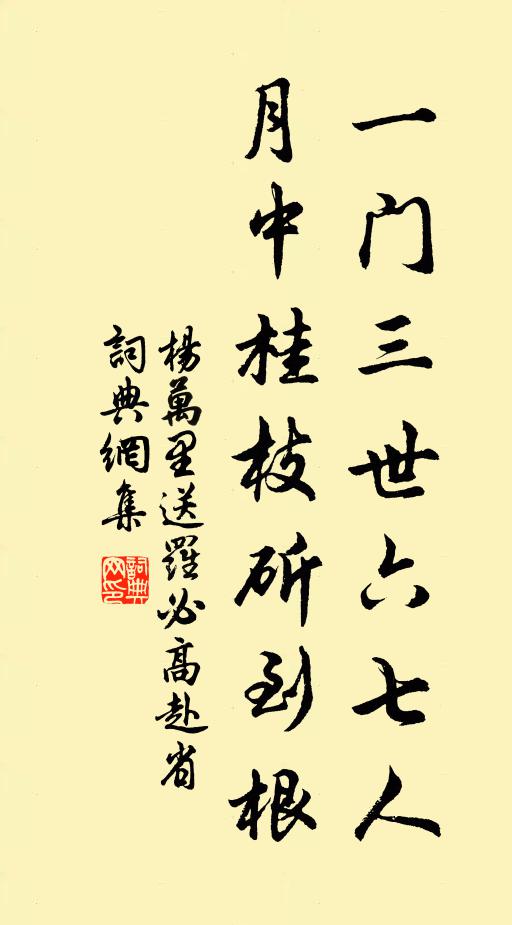 一门三世六七人
月中桂枝斫到根
楊萬里送羅必高赴省
詞典網集
詞典網印